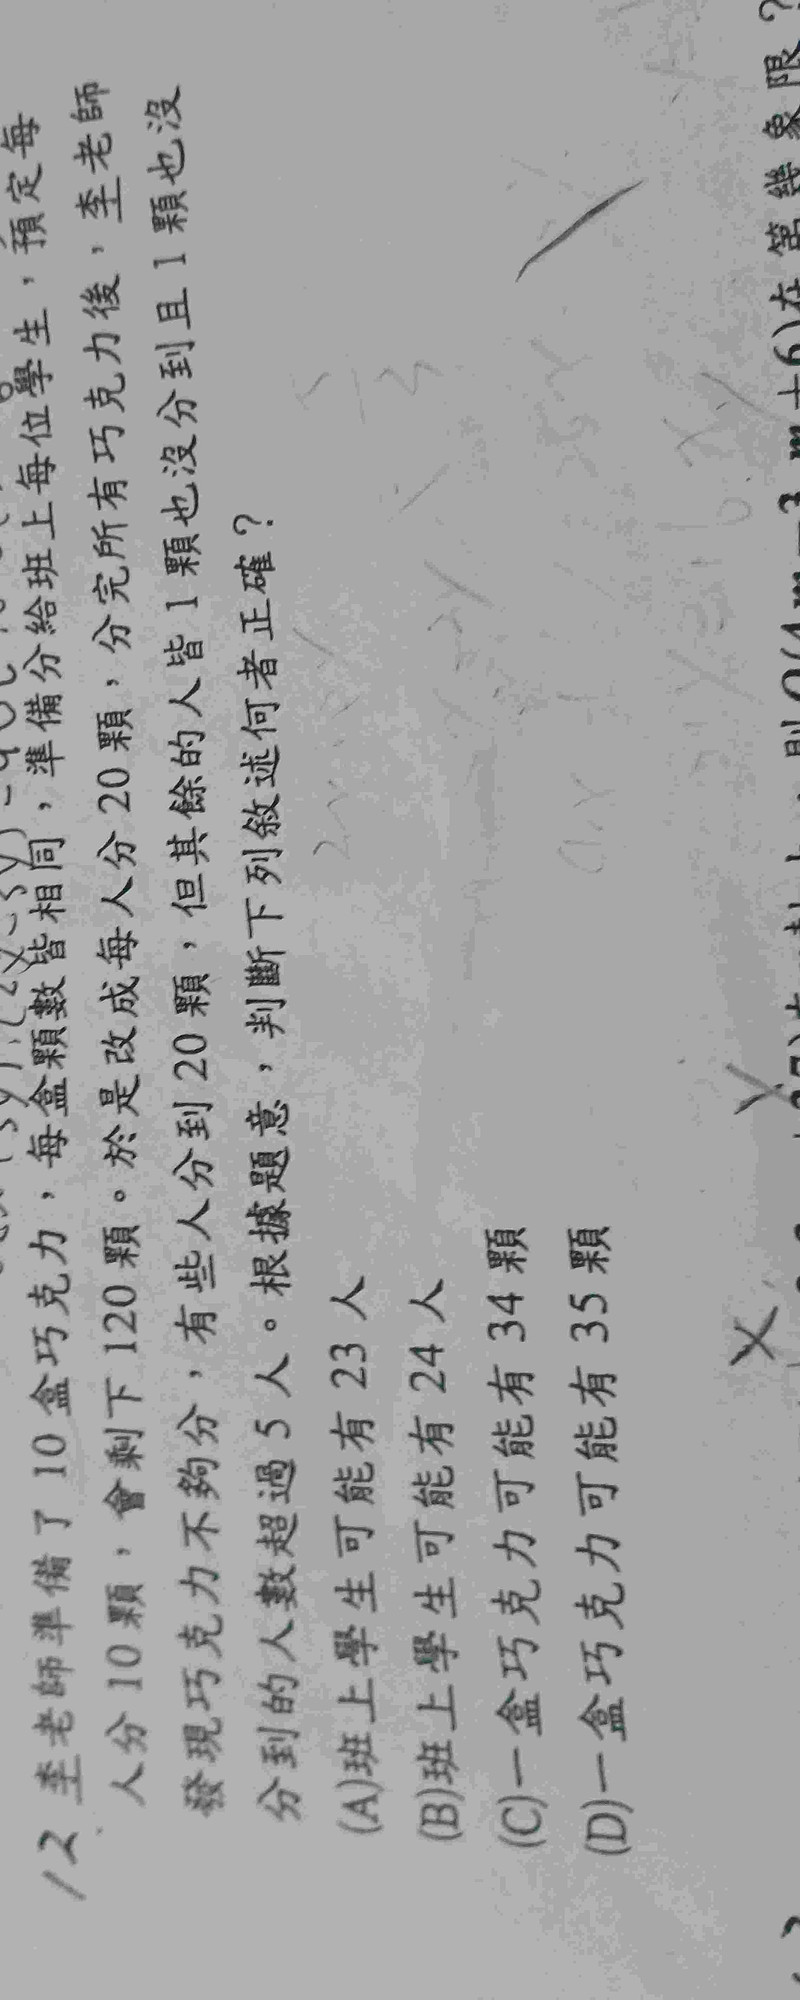 12 李老師準備了 10 盒巧克力，每盒顆數皆相同，準備分給班上每位學生，預定每
人分 10 顆，會剩下 120 顆。於是改成每人分 20 顆，分完所有巧克力後，李老師
發現巧克力不夠分，有些人分到 20 顆，但其餘的人皆 1 顆也沒分到且 1 顆也沒
分到的人數超過 5 人。根據題意，判斷下列敘述何者正確？
(A)班上學生可能有 23 人
(B)班上學生可能有 24 人
(C)一盒巧克力可能有 34 顆
(D)一盒巧克力可能有 35 顆
則Q(4m−3, m+6)在第幾象限？